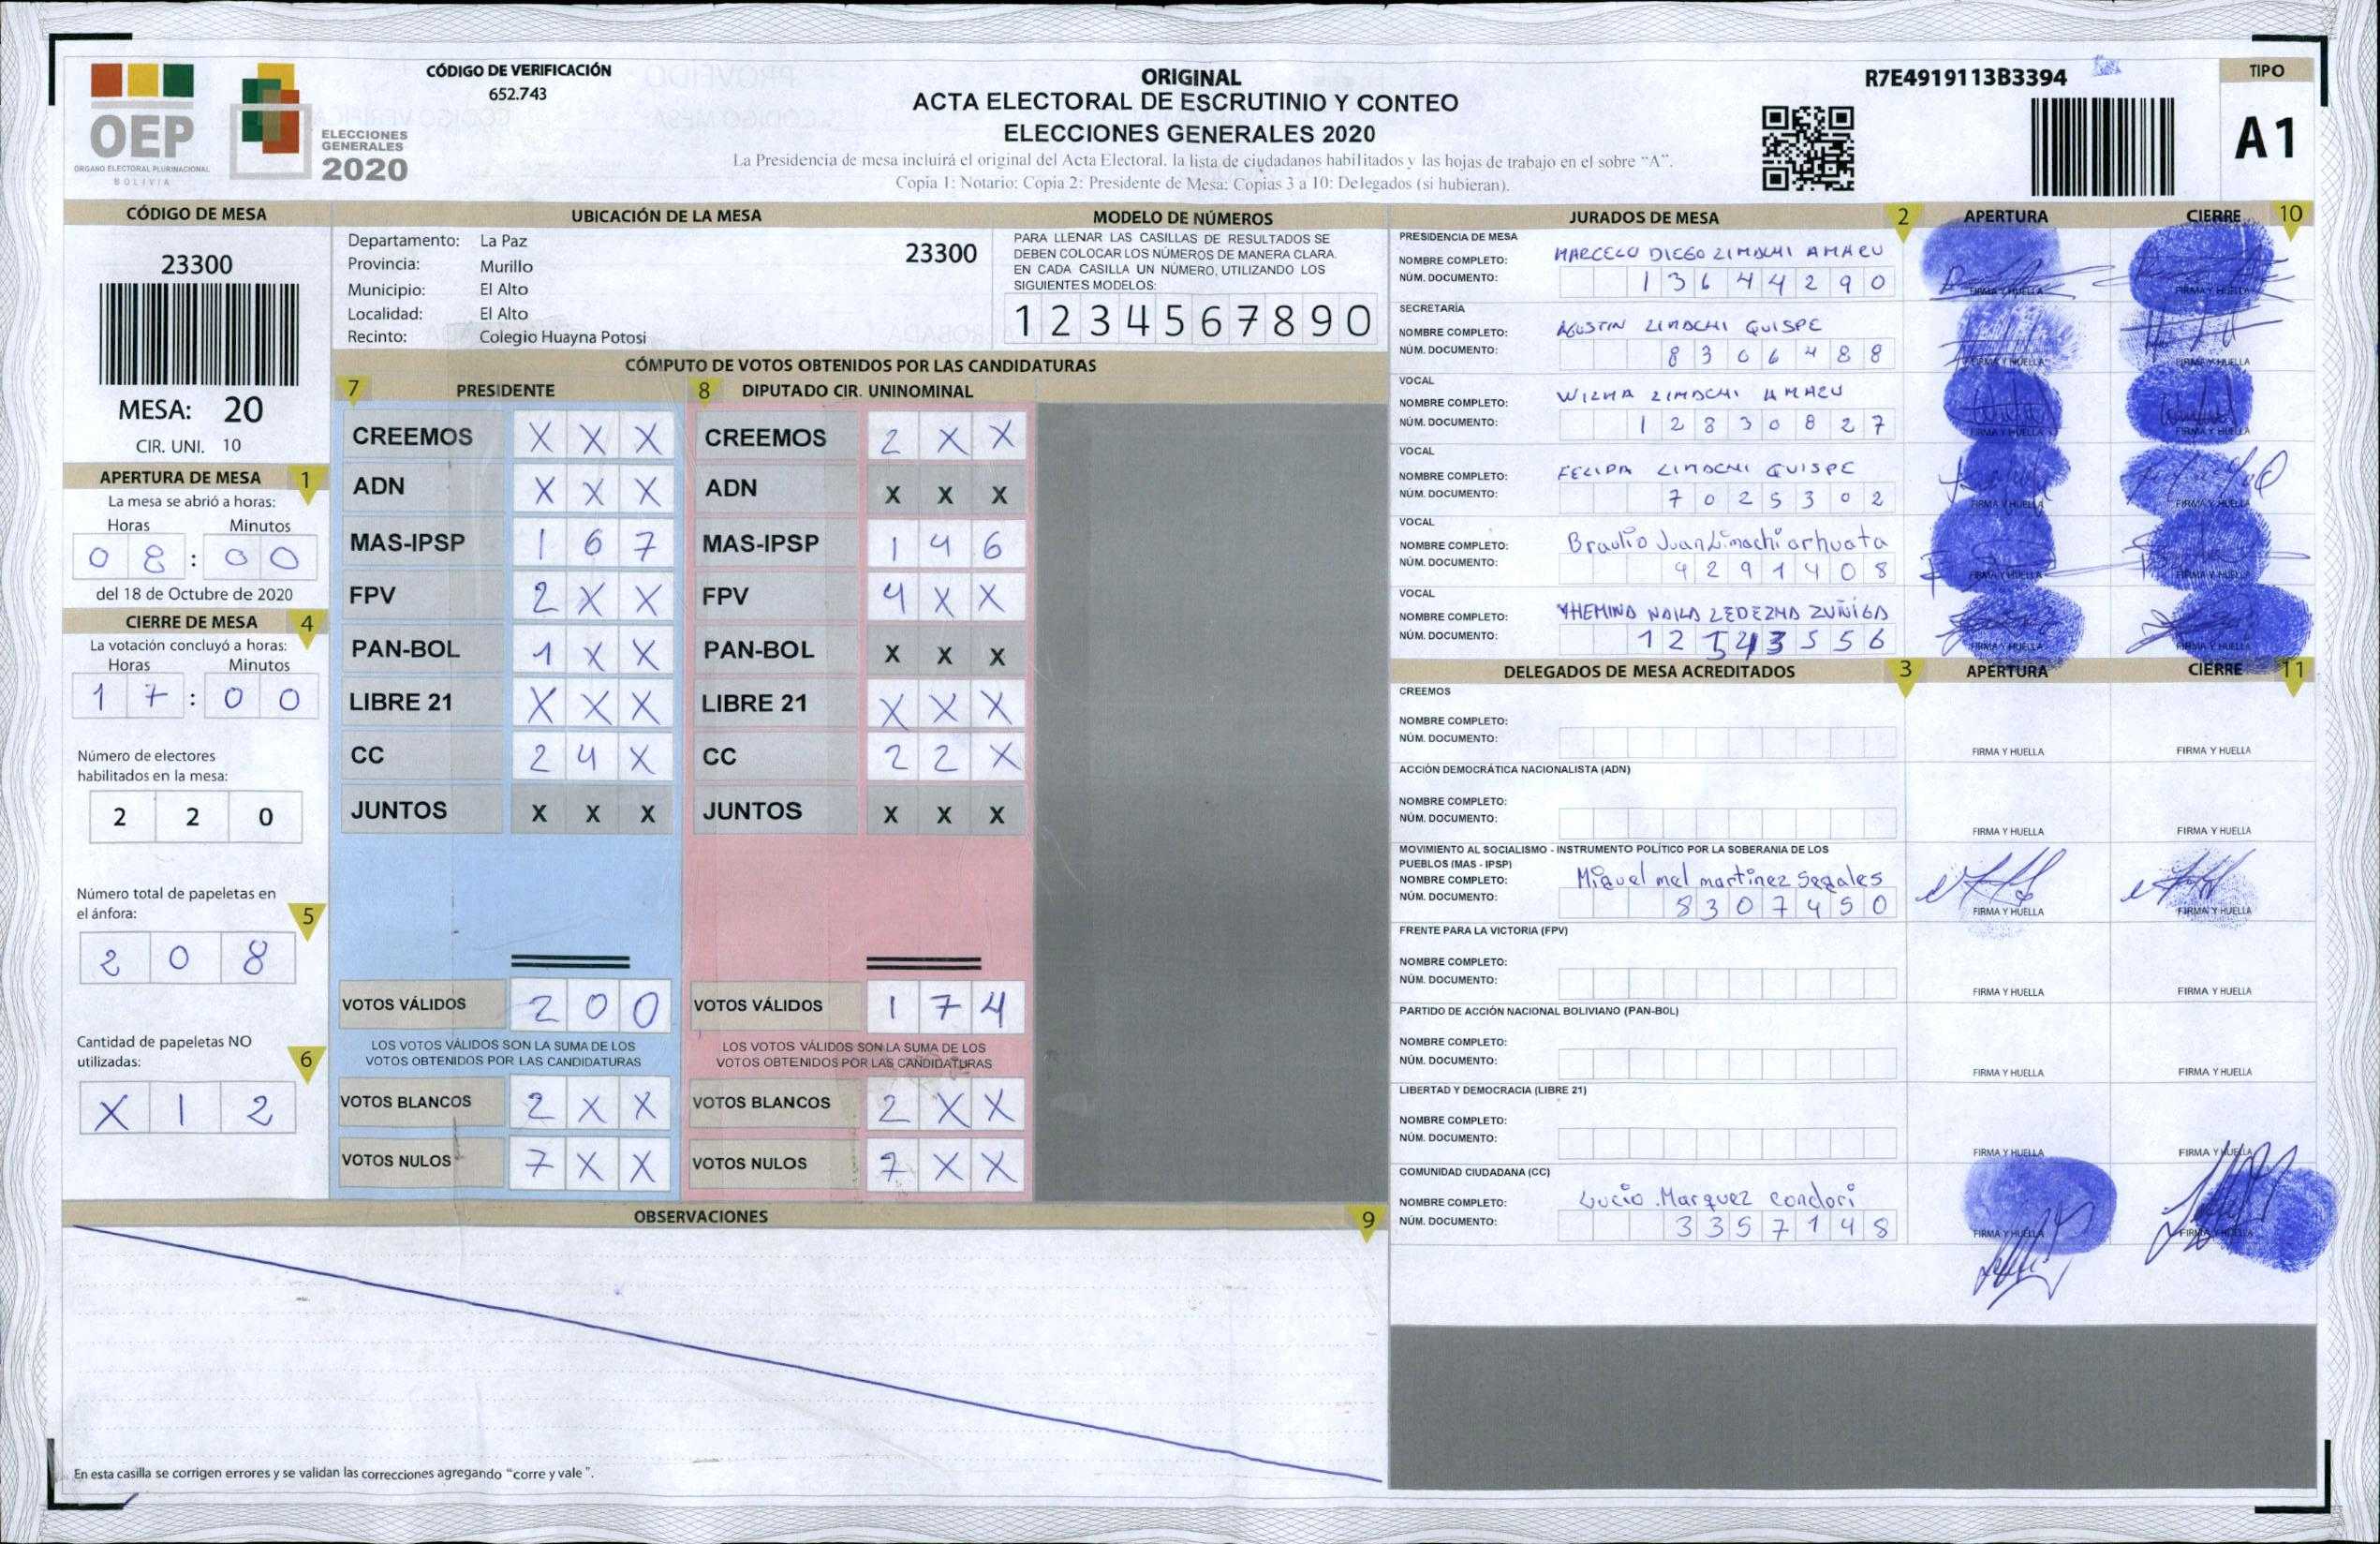 OEP
ÓRGANO ELECTORAL PLURINACIONAL
BOLIVIA
ELECCIONES
GENERALES
2020
CÓDIGO DE VERIFICACIÓN
652.743
ORIGINAL
ACTA ELECTORAL DE ESCRUTINIO Y CONTEO
ELECCIONES GENERALES 2020
La Presidencia de mesa incluirá el original del Acta Electoral, la lista de ciudadanos habilitados y las hojas de trabajo en el sobre "A".
Copia 1: Notario; Copia 2: Presidente de Mesa; Copias 3 a 10: Delegados (si hubieran).
R7E4919113B3394
TIPO
A1
CÓDIGO DE MESA
23300
MESA: 20
CIR. UNI. 10
APERTURA DE MESA 1
La mesa se abrió a horas:
Horas Minutos
0 8 : 0 0
del 18 de Octubre de 2020
CIERRE DE MESA 4
La votación concluyó a horas:
Horas Minutos
1 7 : 0 0
Número de electores
habilitados en la mesa:
2 2 0
Número total de papeletas en
el ánfora: 5
2 0 8
Cantidad de papeletas NO
utilizadas: 6
X 1 2
UBICACIÓN DE LA MESA
Departamento: La Paz 23300
Provincia: Murillo
Municipio: El Alto
Localidad: El Alto
Recinto: Colegio Huayna Potosi
MODELO DE NÚMEROS
PARA LLENAR LAS CASILLAS DE RESULTADOS SE
DEBEN COLOCAR LOS NÚMEROS DE MANERA CLARA.
EN CADA CASILLA UN NÚMERO, UTILIZANDO LOS
SIGUIENTES MODELOS:
1 2 3 4 5 6 7 8 9 0
CÓMPUTO DE VOTOS OBTENIDOS POR LAS CANDIDATURAS
7 PRESIDENTE 8 DIPUTADO CIR. UNINOMINAL
CREEMOS X X X CREEMOS 2 X X
ADN X X X ADN X X X
MAS-IPSP 1 6 7 MAS-IPSP 1 4 6
FPV 2 X X FPV 4 X X
PAN-BOL 1 X X PAN-BOL X X X
LIBRE 21 X X X LIBRE 21 X X X
CC 2 4 X CC 2 2 X
JUNTOS X X X JUNTOS X X X
VOTOS VÁLIDOS 2 0 0 VOTOS VÁLIDOS 1 7 4
LOS VOTOS VÁLIDOS SON LA SUMA DE LOS LOS VOTOS VÁLIDOS SON LA SUMA DE LOS
VOTOS OBTENIDOS POR LAS CANDIDATURAS VOTOS OBTENIDOS POR LAS CANDIDATURAS
VOTOS BLANCOS 2 X X VOTOS BLANCOS 2 X X
VOTOS NULOS 7 X X VOTOS NULOS 7 X X
OBSERVACIONES 9
En esta casilla se corrigen errores y se validan las correcciones agregando "corre y vale".
JURADOS DE MESA 2 APERTURA CIERRE 10
PRESIDENCIA DE MESA
NOMBRE COMPLETO: MARCELO DIEGO LIMACHI AMARU
NÚM. DOCUMENTO: 1 3 6 4 4 2 9 0
FIRMA Y HUELLA FIRMA Y HUELLA
SECRETARÍA
NOMBRE COMPLETO: AGUSTIN LIMACHI QUISPE
NÚM. DOCUMENTO: 8 3 0 6 4 8 8
FIRMA Y HUELLA FIRMA Y HUELLA
VOCAL
NOMBRE COMPLETO: WILMA LIMACHI AMARU
NÚM. DOCUMENTO: 1 2 8 3 0 8 2 7
FIRMA Y HUELLA FIRMA Y HUELLA
VOCAL
NOMBRE COMPLETO: FELIPA LIMACHI QUISPE
NÚM. DOCUMENTO: 7 0 2 5 3 0 2
FIRMA Y HUELLA FIRMA Y HUELLA
VOCAL
NOMBRE COMPLETO: Braulio Juan Limachi arhuata
NÚM. DOCUMENTO: 4 2 9 1 4 0 8
FIRMA Y HUELLA FIRMA Y HUELLA
VOCAL
NOMBRE COMPLETO: NAILA LEDEZMA ZUÑIGA
NÚM. DOCUMENTO:
FIRMA Y HUELLA FIRMA Y HUELLA
DELEGADOS DE MESA ACREDITADOS 3 APERTURA CIERRE 11
CREEMOS
NOMBRE COMPLETO:
NÚM. DOCUMENTO:
FIRMA Y HUELLA FIRMA Y HUELLA
ACCIÓN DEMOCRÁTICA NACIONALISTA (ADN)
NOMBRE COMPLETO:
NÚM. DOCUMENTO:
FIRMA Y HUELLA FIRMA Y HUELLA
MOVIMIENTO AL SOCIALISMO - INSTRUMENTO POLÍTICO POR LA SOBERANIA DE LOS
PUEBLOS (MAS - IPSP)
NOMBRE COMPLETO: Miguel mel martinez Segales
NÚM. DOCUMENTO: 8 3 0 7 4 5 0
FIRMA Y HUELLA FIRMA Y HUELLA
FRENTE PARA LA VICTORIA (FPV)
NOMBRE COMPLETO:
NÚM. DOCUMENTO:
FIRMA Y HUELLA FIRMA Y HUELLA
PARTIDO DE ACCIÓN NACIONAL BOLIVIANO (PAN-BOL)
NOMBRE COMPLETO:
NÚM. DOCUMENTO:
FIRMA Y HUELLA FIRMA Y HUELLA
LIBERTAD Y DEMOCRACIA (LIBRE 21)
NOMBRE COMPLETO:
NÚM. DOCUMENTO:
FIRMA Y HUELLA FIRMA Y HUELLA
COMUNIDAD CIUDADANA (CC)
NOMBRE COMPLETO: Lucio Marquez Condori
NÚM. DOCUMENTO: 3 3 5 7 1 4 8
FIRMA Y HUELLA FIRMA Y HUELLA